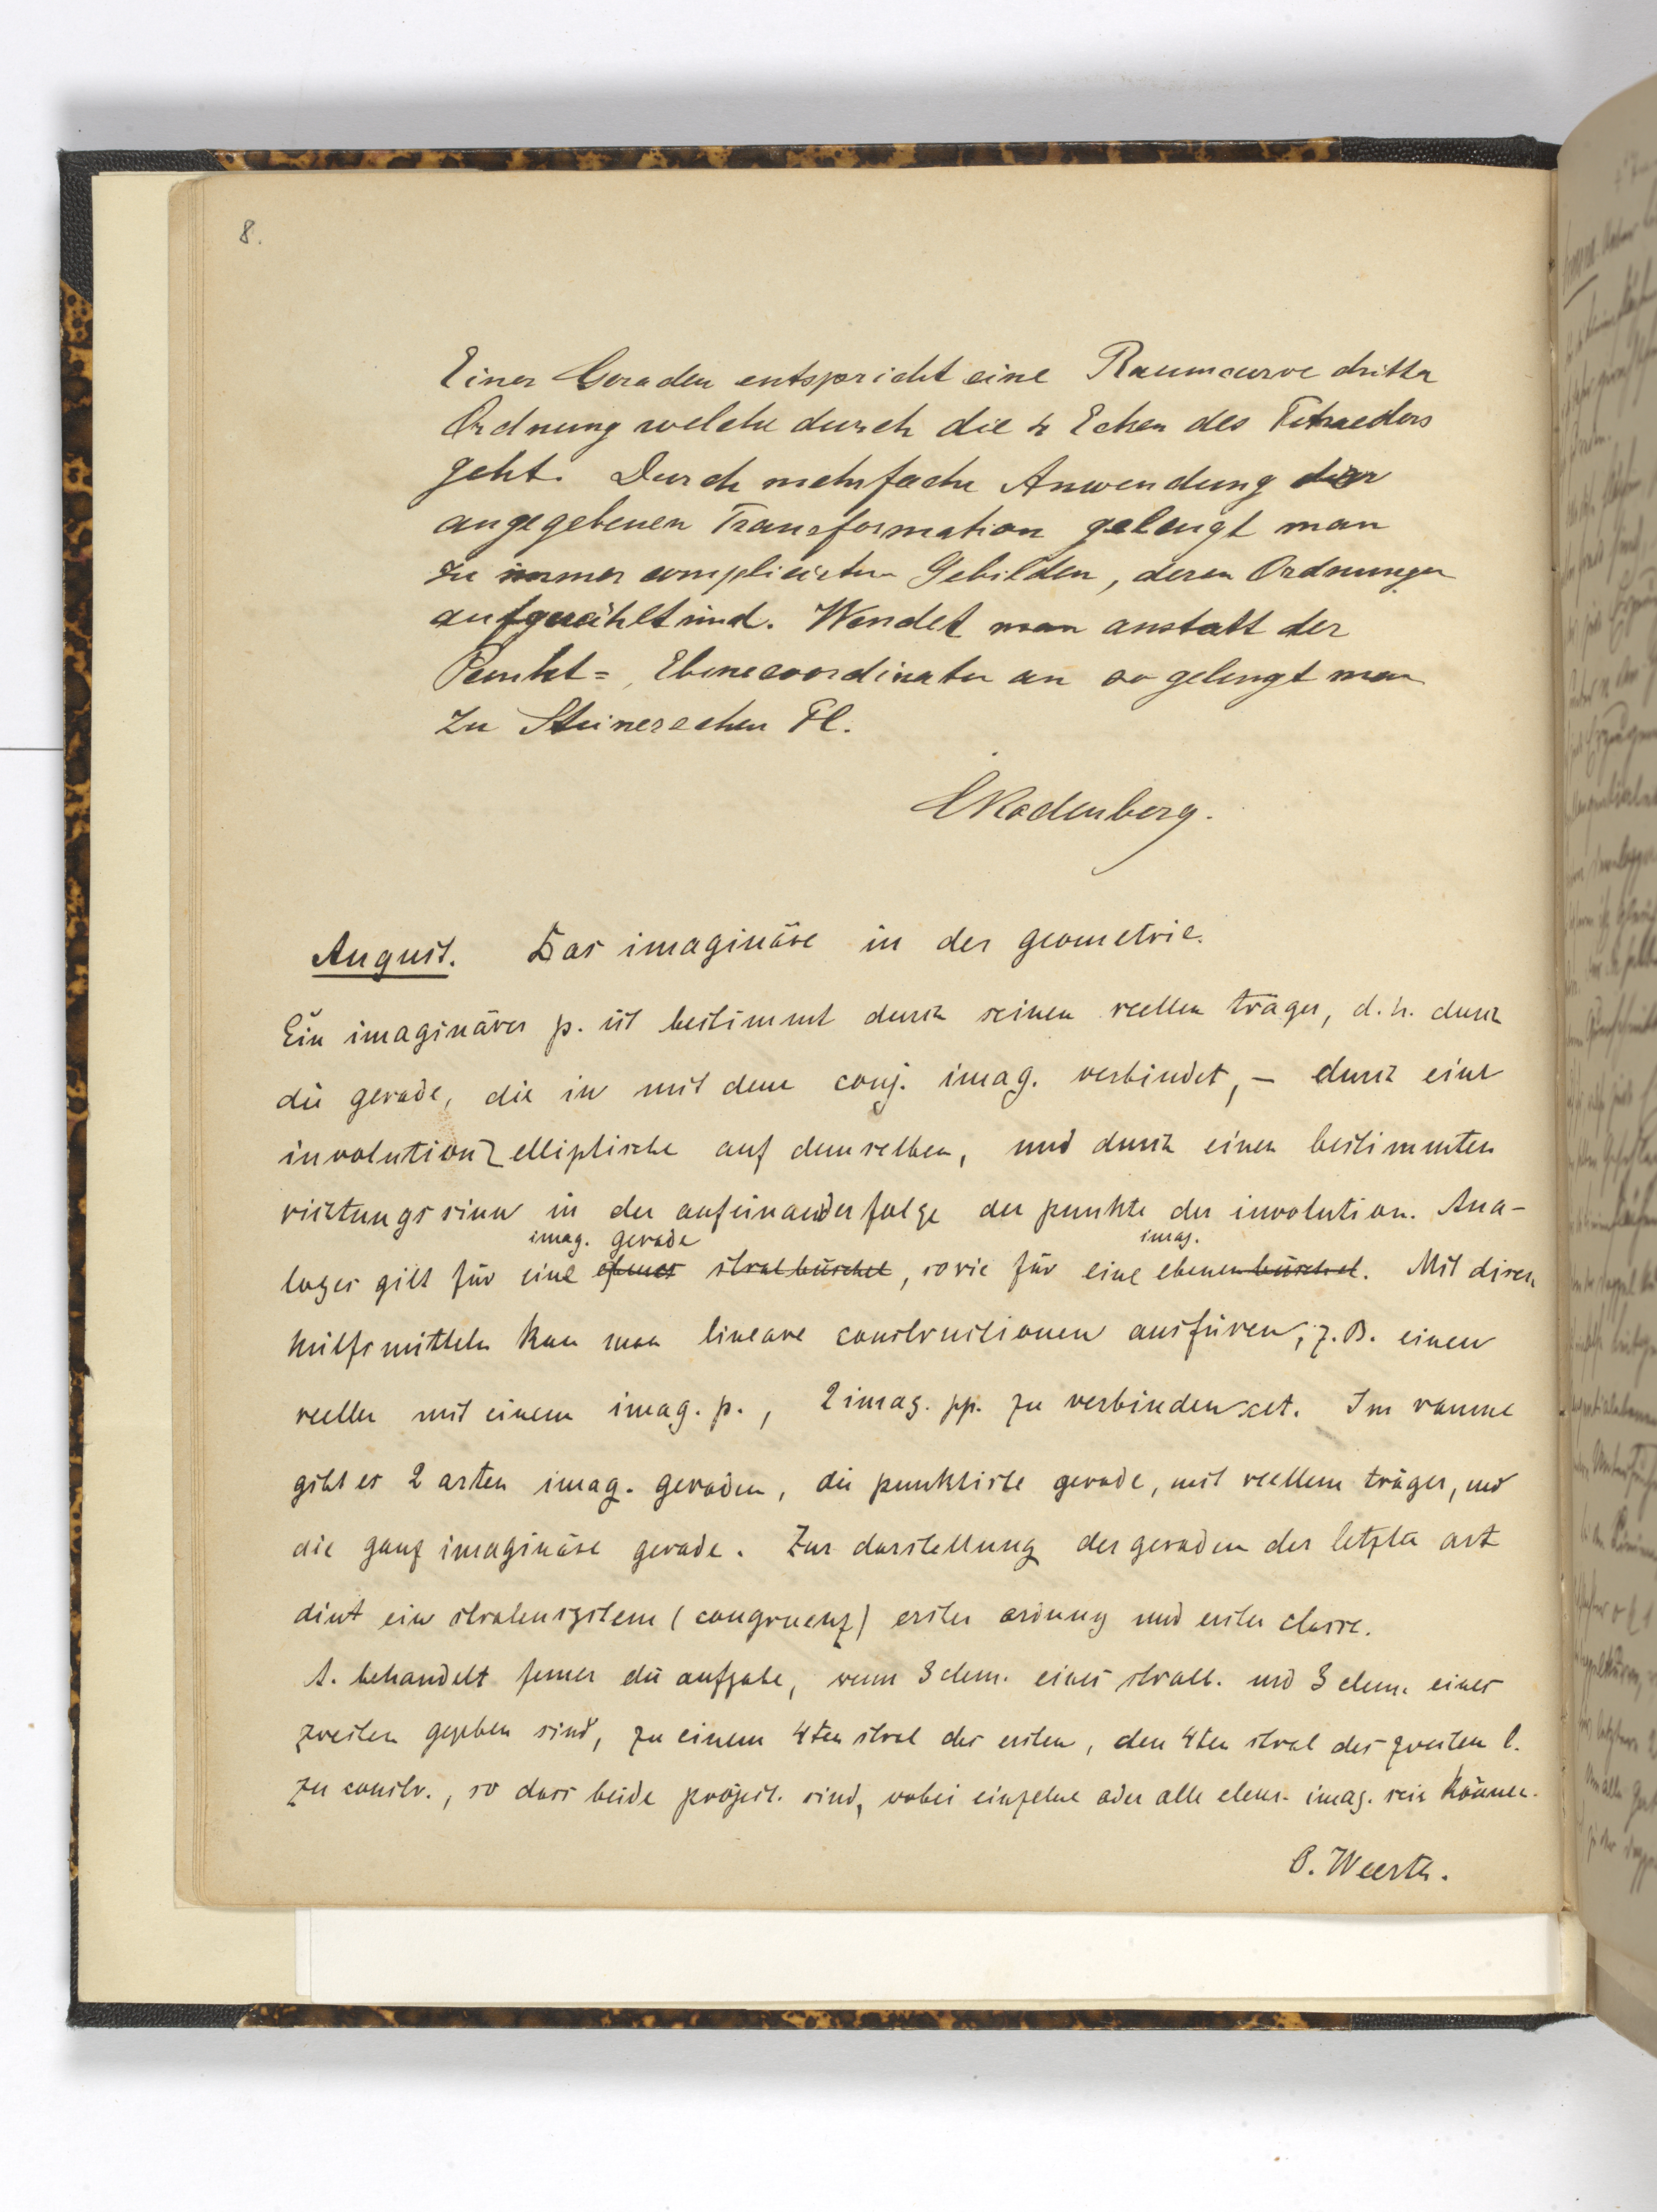 8.
Einer Geraden entspricht eine Raumcurve dritter
Ordnung welche durch die 4 Ecken des Tetraeders
geht. Durch mehrfache Anwendung der
angegebenen Transformation gelangt man
zu immer complicirten Gebilden, deren Ordnungen
aufgezählt sind. Wendet man anstatt der
Punkt=, Ebenecoordinaten an so gelangt man
zu Steinerschen Fl.
CRodenberg.
August. Das imaginäre in der geometrie.
Ein imaginärer p. ist bestimmt durch seinen reellen träger, d. h. durch
die gerade, die in mit dem conj. imag. verbindet, – durch eine
involution elliptische auf demselben, und durch einen bestimmten
richtungssinn in der aufeinanderfolge der punkte der involution. Ana-
imag. gerade imag.
loges gilt für eine ebenes stralbüschel, sowie für eine ebenenbüschel. Mit disen
hülfsmitteln kan man lineare constructionen ausfüren, z. B. einen
reellen mit einem imag. p., 2 imag. pp. zu verbinden ect. Im raume
gibt es 2 arten imag. geraden, die punktirte gerade, mit reellem träger, und
die ganz imaginäre gerade. Zur darstellung der geraden der letzten art
dint ein stralensystem (congruenz) erster ordnung und erster classe.
A. behandelt ferner die aufgabe, wenn 3 elem. eines stralb. und 3 elem. eines
zweiten gegeben sind, zu einem 4ten stral des ersten, den 4ten stral des zweiten b.
zu constr., so dass beide project. sind, wobei einzelne oder alle elem. imag. sein können.
O. Weerth.